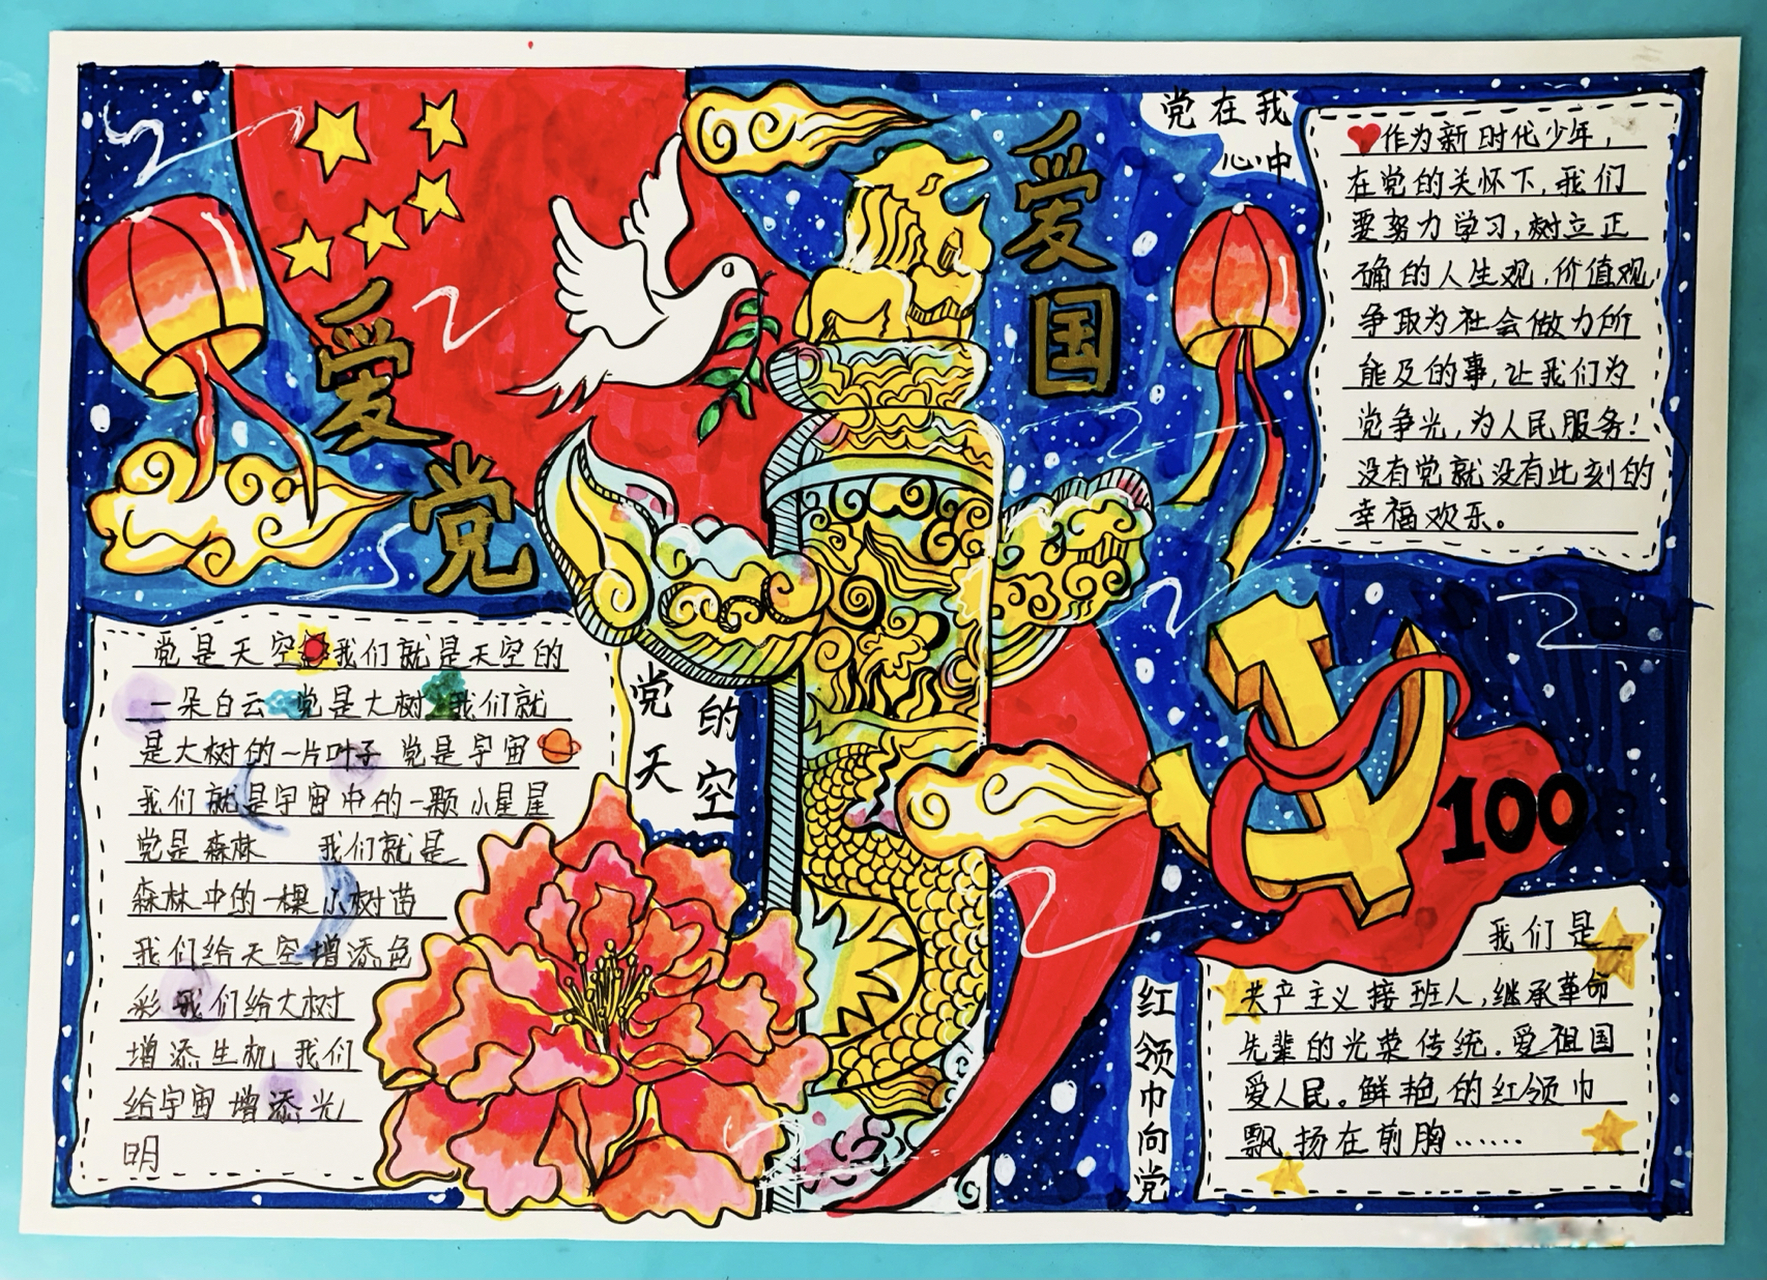 爱
党
爱
国
党在我
心中
作为新时代少年，
在党的关怀下，我们
要努力学习，树立正
确的人生观，价值观，
争取为社会做力所
能及的事，让我们为
党争光，为人民服务！
没有党就没有此刻的
幸福欢乐。
党的
天空
党是天空 我们就是天空的
一朵白云 党是大树 我们就
是大树的一片叶子 党是宇宙
我们就是宇宙中的一颗小星星
党是森林 我们就是
森林中的一棵小树苗
我们给天空增添色
彩 我们给大树
增添生机 我们
给宇宙增添光
明
100
红领巾向党
我们是
共产主义接班人，继承革命
先辈的光荣传统。爱祖国
爱人民。鲜艳的红领巾
飘扬在前胸……